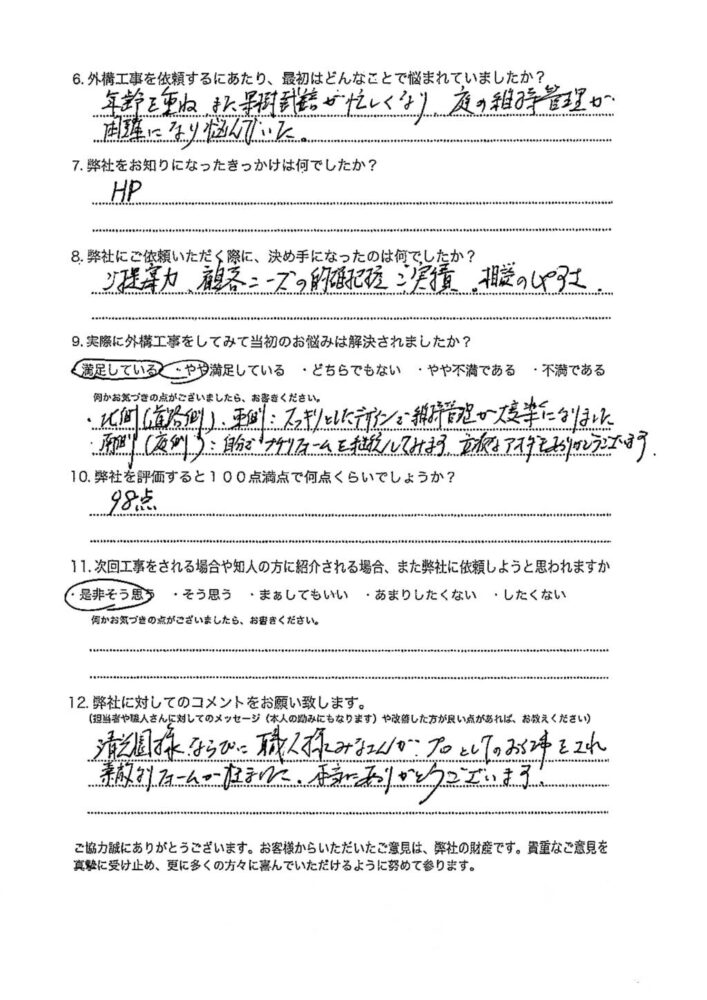 6. 外構工事を依頼するにあたり、最初はどんなことで悩まれていましたか？
年齢を重ね また果樹栽培が忙しくなり、庭の維持管理が
困難になり悩んでいた。
7. 弊社をお知りになったきっかけは何でしたか？
HP
8. 弊社にご依頼いただく際に、決め手になったのは何でしたか？
ご提案力、顧客ニーズの的確把握 ご実績、相談のしやすさ、
9. 実際に外構工事をしてみて当初のお悩みは解決されましたか？
満足している ・やや満足している ・どちらでもない ・やや不満である ・不満である
何かお気づきの点がございましたら、お書きください。
・北側(道路側)、東側：スッキリとしたデザインで維持管理が大変楽になりました
・南側(庭側)：自分でプチリフォームを継続してみます 立派なアイデアありがとうございます。
10. 弊社を評価すると１００点満点で何点くらいでしょうか？
98点
11. 次回工事をされる場合や知人の方に紹介される場合、また弊社に依頼しようと思われますか
・是非そう思う ・そう思う ・まぁしてもいい ・あまりしたくない ・したくない
何かお気づきの点がございましたら、お書きください。
12. 弊社に対してのコメントをお願い致します。
（担当者や職人さんに対してのメッセージ（本人の励みにもなります）や改善した方が良い点があれば、お教えください）
清芝園様ならびに職人様みなさんが、プロとしてのお仕事をされ
素敵なリフォームが出来ました。本当にありがとうございます。
ご協力誠にありがとうございます。お客様からいただいたご意見は、弊社の財産です。貴重なご意見を
真摯に受け止め、更に多くの方々に喜んでいただけるように努めて参ります。